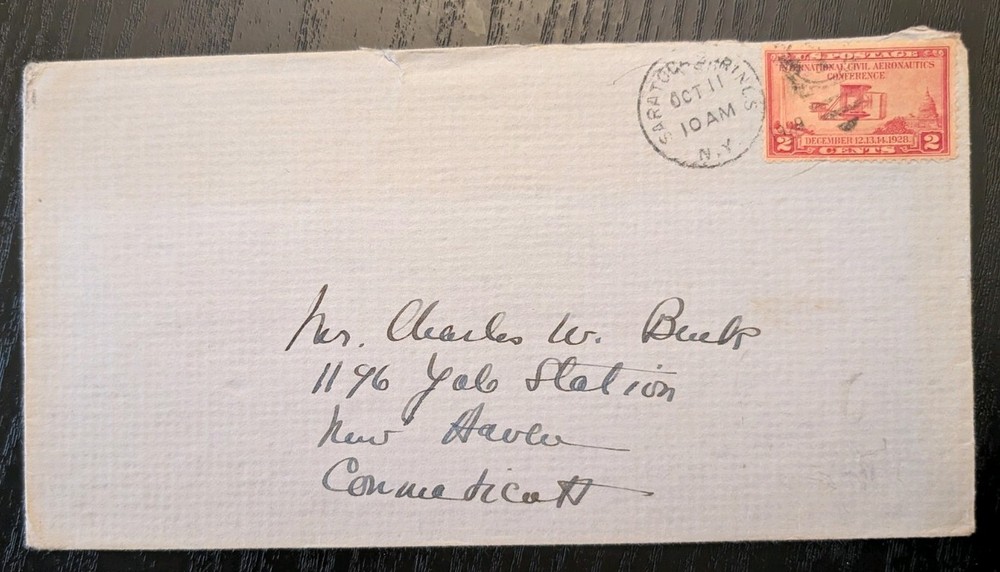 SARATOGA SPRINGS
OCT 11
10 AM
N.Y.
U.S. POSTAGE
INTERNATIONAL CIVIL AERONAUTICS
CONFERENCE
2 DECEMBER 12.13.14.1928. 2
CENTS
Mr. Charles W.
1196 Yale Station
New Haven
Connecticutt